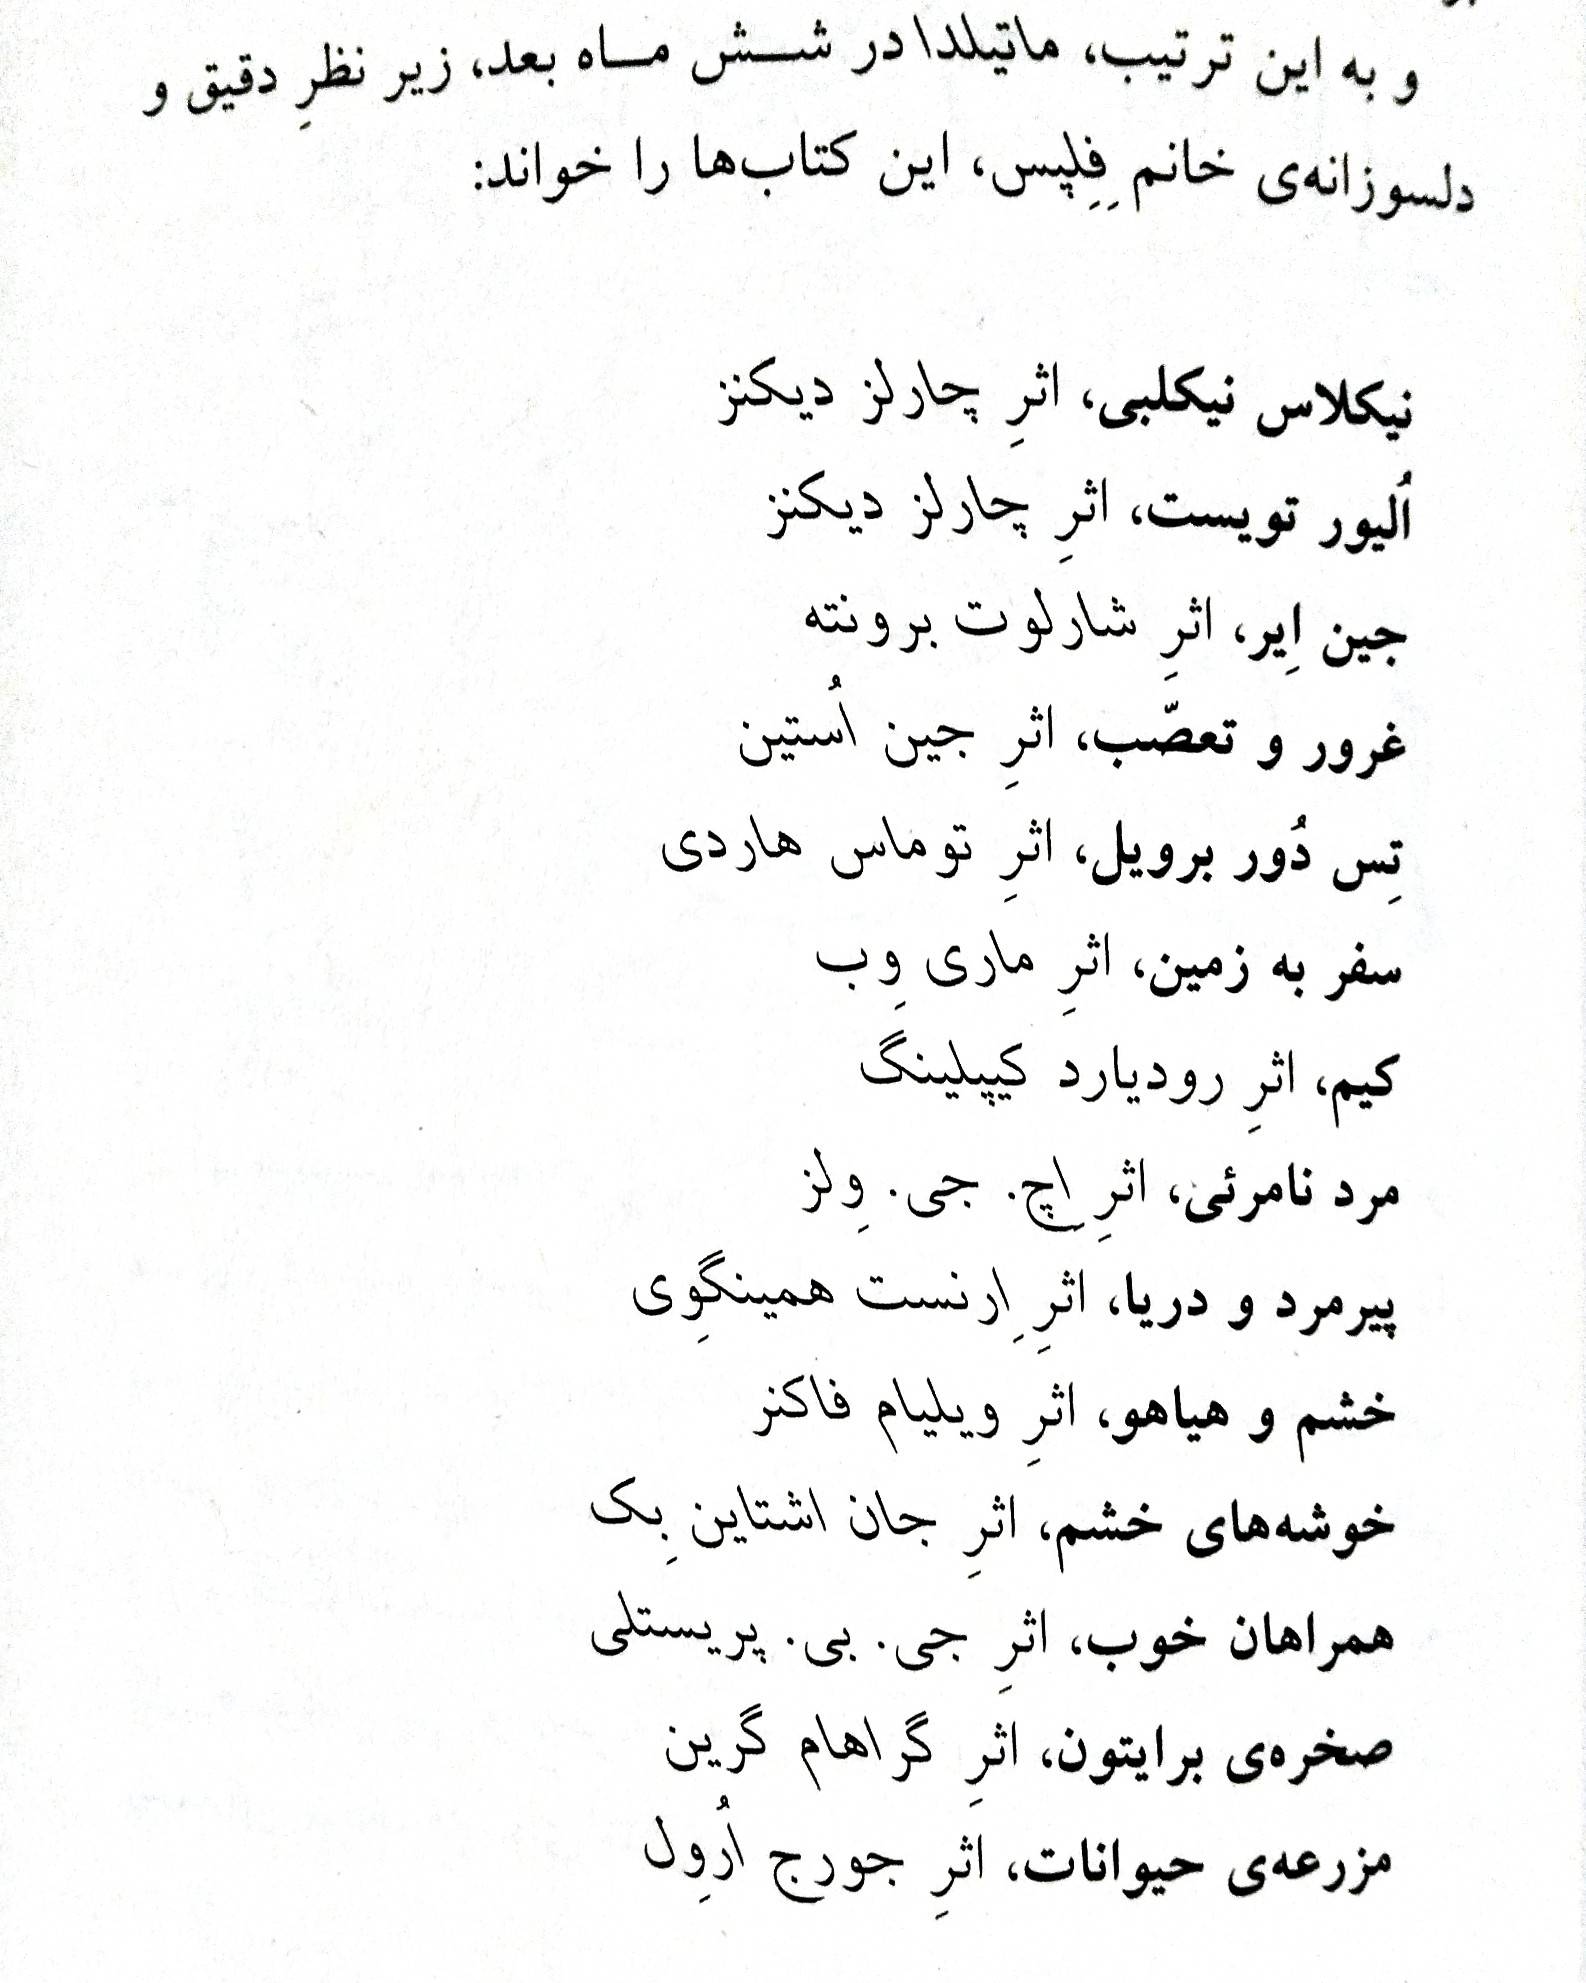 و به این ترتیب، ماتیلدا در شش ماه بعد، زیر نظرِ دقیق و
دلسوزانه‌ی خانم فِلِپس، این کتاب‌ها را خواند:
نیکلاس نیکلبی، اثرِ چارلز دیکنز
اُلیور تویست، اثرِ چارلز دیکنز
جین اِیر، اثرِ شارلوت برونته
غرور و تعصّب، اثرِ جین اُستین
تِس دُور برویل، اثرِ توماس هاردی
سفر به زمین، اثرِ ماری وِب
کیم، اثرِ رودیارد کیپلینگ
مرد نامرئی، اثرِ اِچ. جی. وِلز
پیرمرد و دریا، اثرِ اِرنست همینگوِی
خشم و هیاهو، اثرِ ویلیام فاکنر
خوشه‌های خشم، اثرِ جان اشتاین بِک
همراهان خوب، اثرِ جی. بی. پریستلی
صخره‌ی برایتون، اثرِ گراهام گرین
مزرعه‌ی حیوانات، اثرِ جورج اُروِل